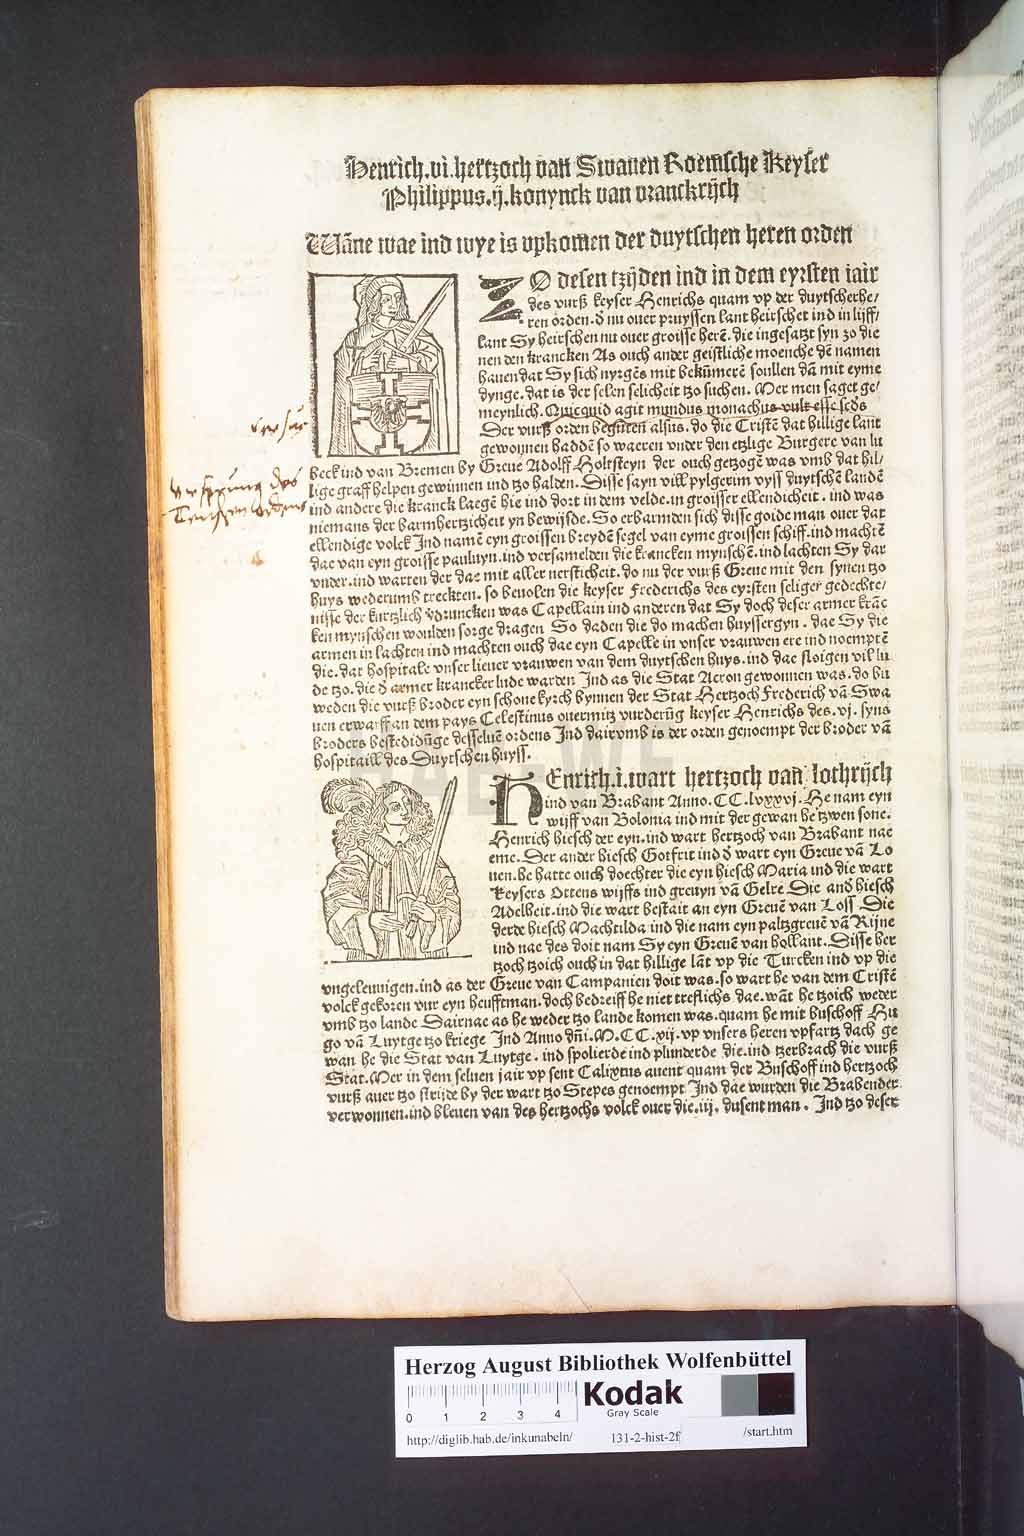 Henrich.vi.hertzoch van Swauen Roemsche Keyser
Philippus.ij.konynck van vranckrijch
Wāne wae ind wye is vpkomen der duytschen heren orden
ZO desen tzijden ind in dem eyrsten iair
des vurß keyser Henrichs quam vp der duytscherhe/
ren orden. d̄ nu ouer pruyssen lant heirschet ind in lijff/
lant Sy heirschen nu ouer groisse herē. die ingesatzt syn zo die
nen den krancken As ouch ander geistliche moenche dē namen
hauen dat Sy sich nyrgēs mit bekūmerē soullen dā mit eyme
dynge. dat is der selen selicheit tzo suchen. Mer men saget ge/
meynlich. Quicquid agit mundus monachus vult esse scds
Der vurß orden begunen alsus. do die Cristē dat hillige lant
gewonnen haddē so waeren vnder den etzlige Burgere van lu
beck ind van Bremen by Greue Adolff Holtsteyn der ouch getzogē was vmb dat hil/
lige graff helpen gewinnen ind tzo halden. Disse sayn vill pylgerim vyss duytschē landē
ind andere die kranck laegē hie ind dort in dem velde. in groisser ellendicheit. ind was
niemans der barmhertzicheit yn bewijsde. So erbarmden sich disse goide man ouer dat
ellendige volck Ind namē eyn groissen breydē segel van eyme groissen schiff. ind machtē
dae van eyn groisse pauluyn. ind versamelden die krancken mynschē. ind lachten Sy dar
vnder. ind warten der dae mit aller nersticheit. do nu der vurß Greue mit den synen tzo
huys wederumb treckten. so beuolen die keyser Frederichs des eyrsten seliger gedechte/
nisse der kurtzlich vdruncken was Capellain ind anderen dat Sy doch deser armer krāc
ken mynschen woulden sorge dragen So daden die do machen huyssergyn. dae Sy die
armen in lachten ind machten ouch dae eyn Capelle in vnser vrauwen ere ind noemptē
die. dat hospitale vnser lieuer vrauwen van dem duytschen huys. ind dae sloigen vil lu
de tzo. die d̄ armer krancker lude warden Ind as die Stat Acron gewonnen was. do bu
weden die vurß broder eyn schone kyrch bynnen der Stat Hertzoch Frederich vā Swa
uen erwarff an dem pays Celestinus ouermitz vurderūg keyser Henrichs des. vj. syns
broders bestedidūge desseluē ordens Ind dairvmb is der orden genoempt der broder vā
hospitaill des Duytschen huyss.
HEnrich.i.wart hertzoch van lothrijch
ind van Brabant Anno. CC. lxxxvj. He nam eyn
wijff van Bolonia ind mit der gewan he tzwen sone.
Henrich hiesch der eyn. ind wart hertzoch van Brabant nae
eme. Der ander hiesch Gotfrit ind d̄ wart eyn Greue vā Lo
uen. he hatte ouch doechter die eyn hiesch Maria ind die wart
keysers Ottens wijffs ind greuyn vā Gelre Die and̄ hiesch
Adelheit. ind die wart bestait an eyn Greuē van Loss. Die
derde hiesch Machtilda ind die nam eyn paltzgreuē vā Rijne
ind nae des doit nam Sy eyn Greuē van hollant. Disse her
tzoch tzoich ouch in dat hillige lāt vp die Turcken ind vp die
vngeleuuigen. ind as der Greue van Campanien doit was. so wart he van dem Cristē
volck gekoren vur eyn heufftman. doch bedreiff he niet treflichs dae. wāt he tzoich weder
vmb tzo lande Dairnae as he weder tzo lande komen was. quam he mit buschoff Hu
go vā Luytge tzo kriege Ind Anno dn̄i. M. CC. xij. vp vnsers heren vpfartz dach ge
wan he die Stat van Luytge. ind spolierde ind plunderde die. ind tzerbrach die vurß
Stat. Mer in dem seluen jair vp sent Calixtus auent quam der Buschoff ind hertzoch
vurß auer tzo strijde by der wart tzo Stepes genoempt Ind dae wurden die Brabender
verwonnen. ind bleuen van des hertzochs volck ouer die. iij. dusent man. Ind tzo deser
Vrsprung des
Herzog August Bibliothek Wolfenbüttel
0 1 2 3 4
Kodak
Gray Scale
http://diglib.hab.de/inkunabeln/ 131-2-hist-2f /start.htm